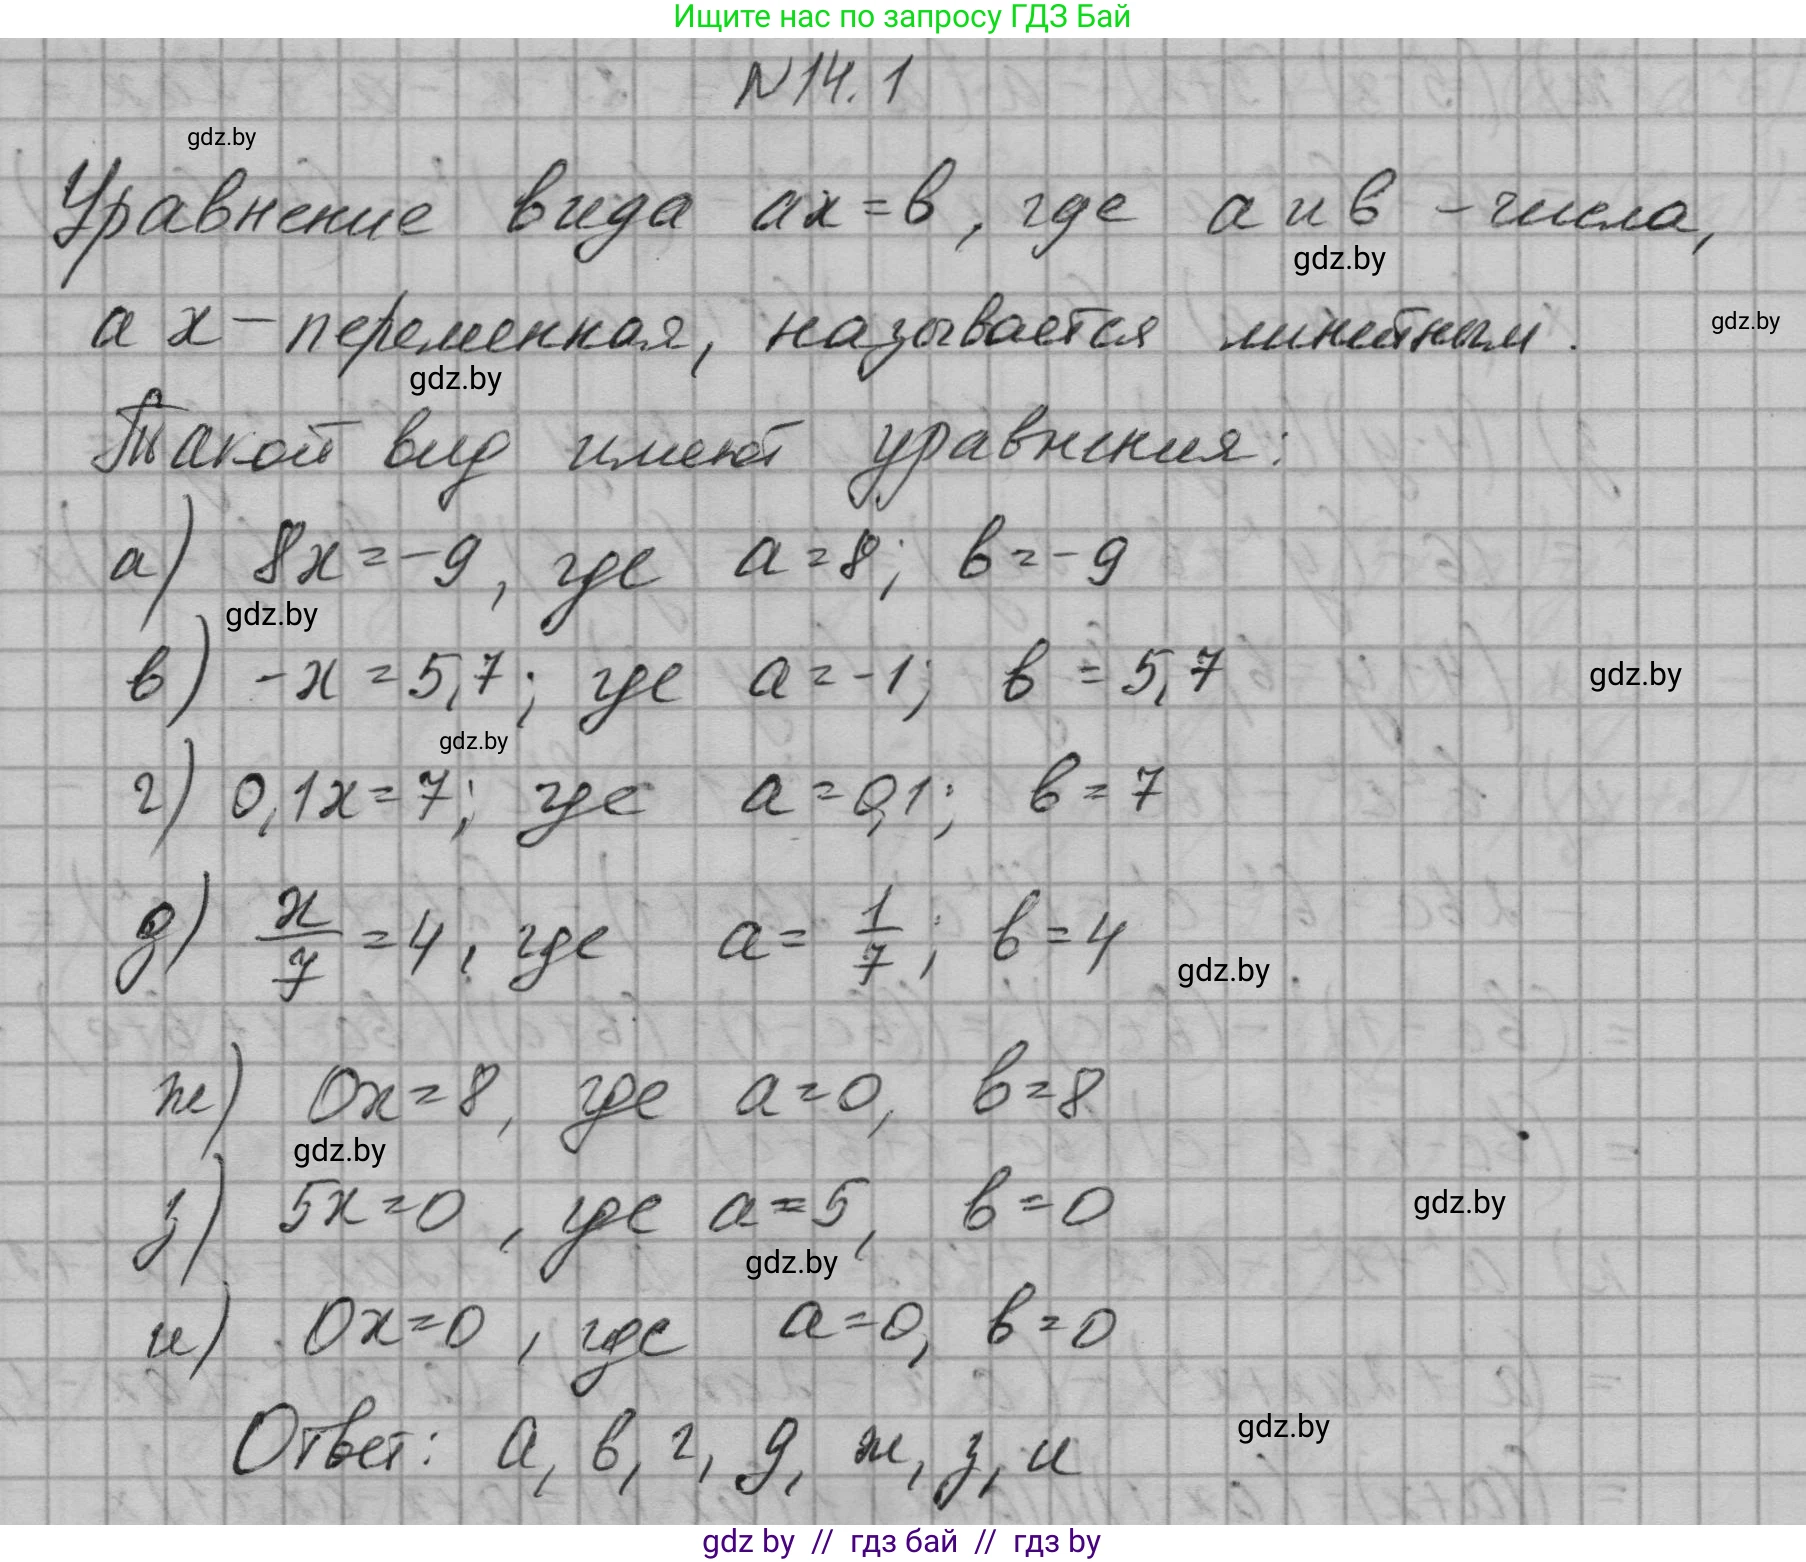 Ищите нас по запросу ГДЗ Бай
N14.1
gdz.by
Уравнение вида ax=b, где a и b - числа,
gdz.by
а x - переменная, называется линейным.
gdz.by
gdz.by
Такой вид имеют уравнения:
а) 8x=-9, где a=8; b=-9
gdz.by
в) -x=5,7; где a=-1; b=5,7
gdz.by
gdz.by
г) 0,1x=7; где a=0,1; b=7
д) x/7=4, где a=1/7; b=4
gdz.by
ж) 0x=8, где a=0, b=8
gdz.by
з) 5x=0, где a=5, b=0
gdz.by
gdz.by
и) 0x=0, где a=0, b=0
Ответ: а, в, г, д, ж, з, и
gdz.by
gdz by // гдз бай // гдз by